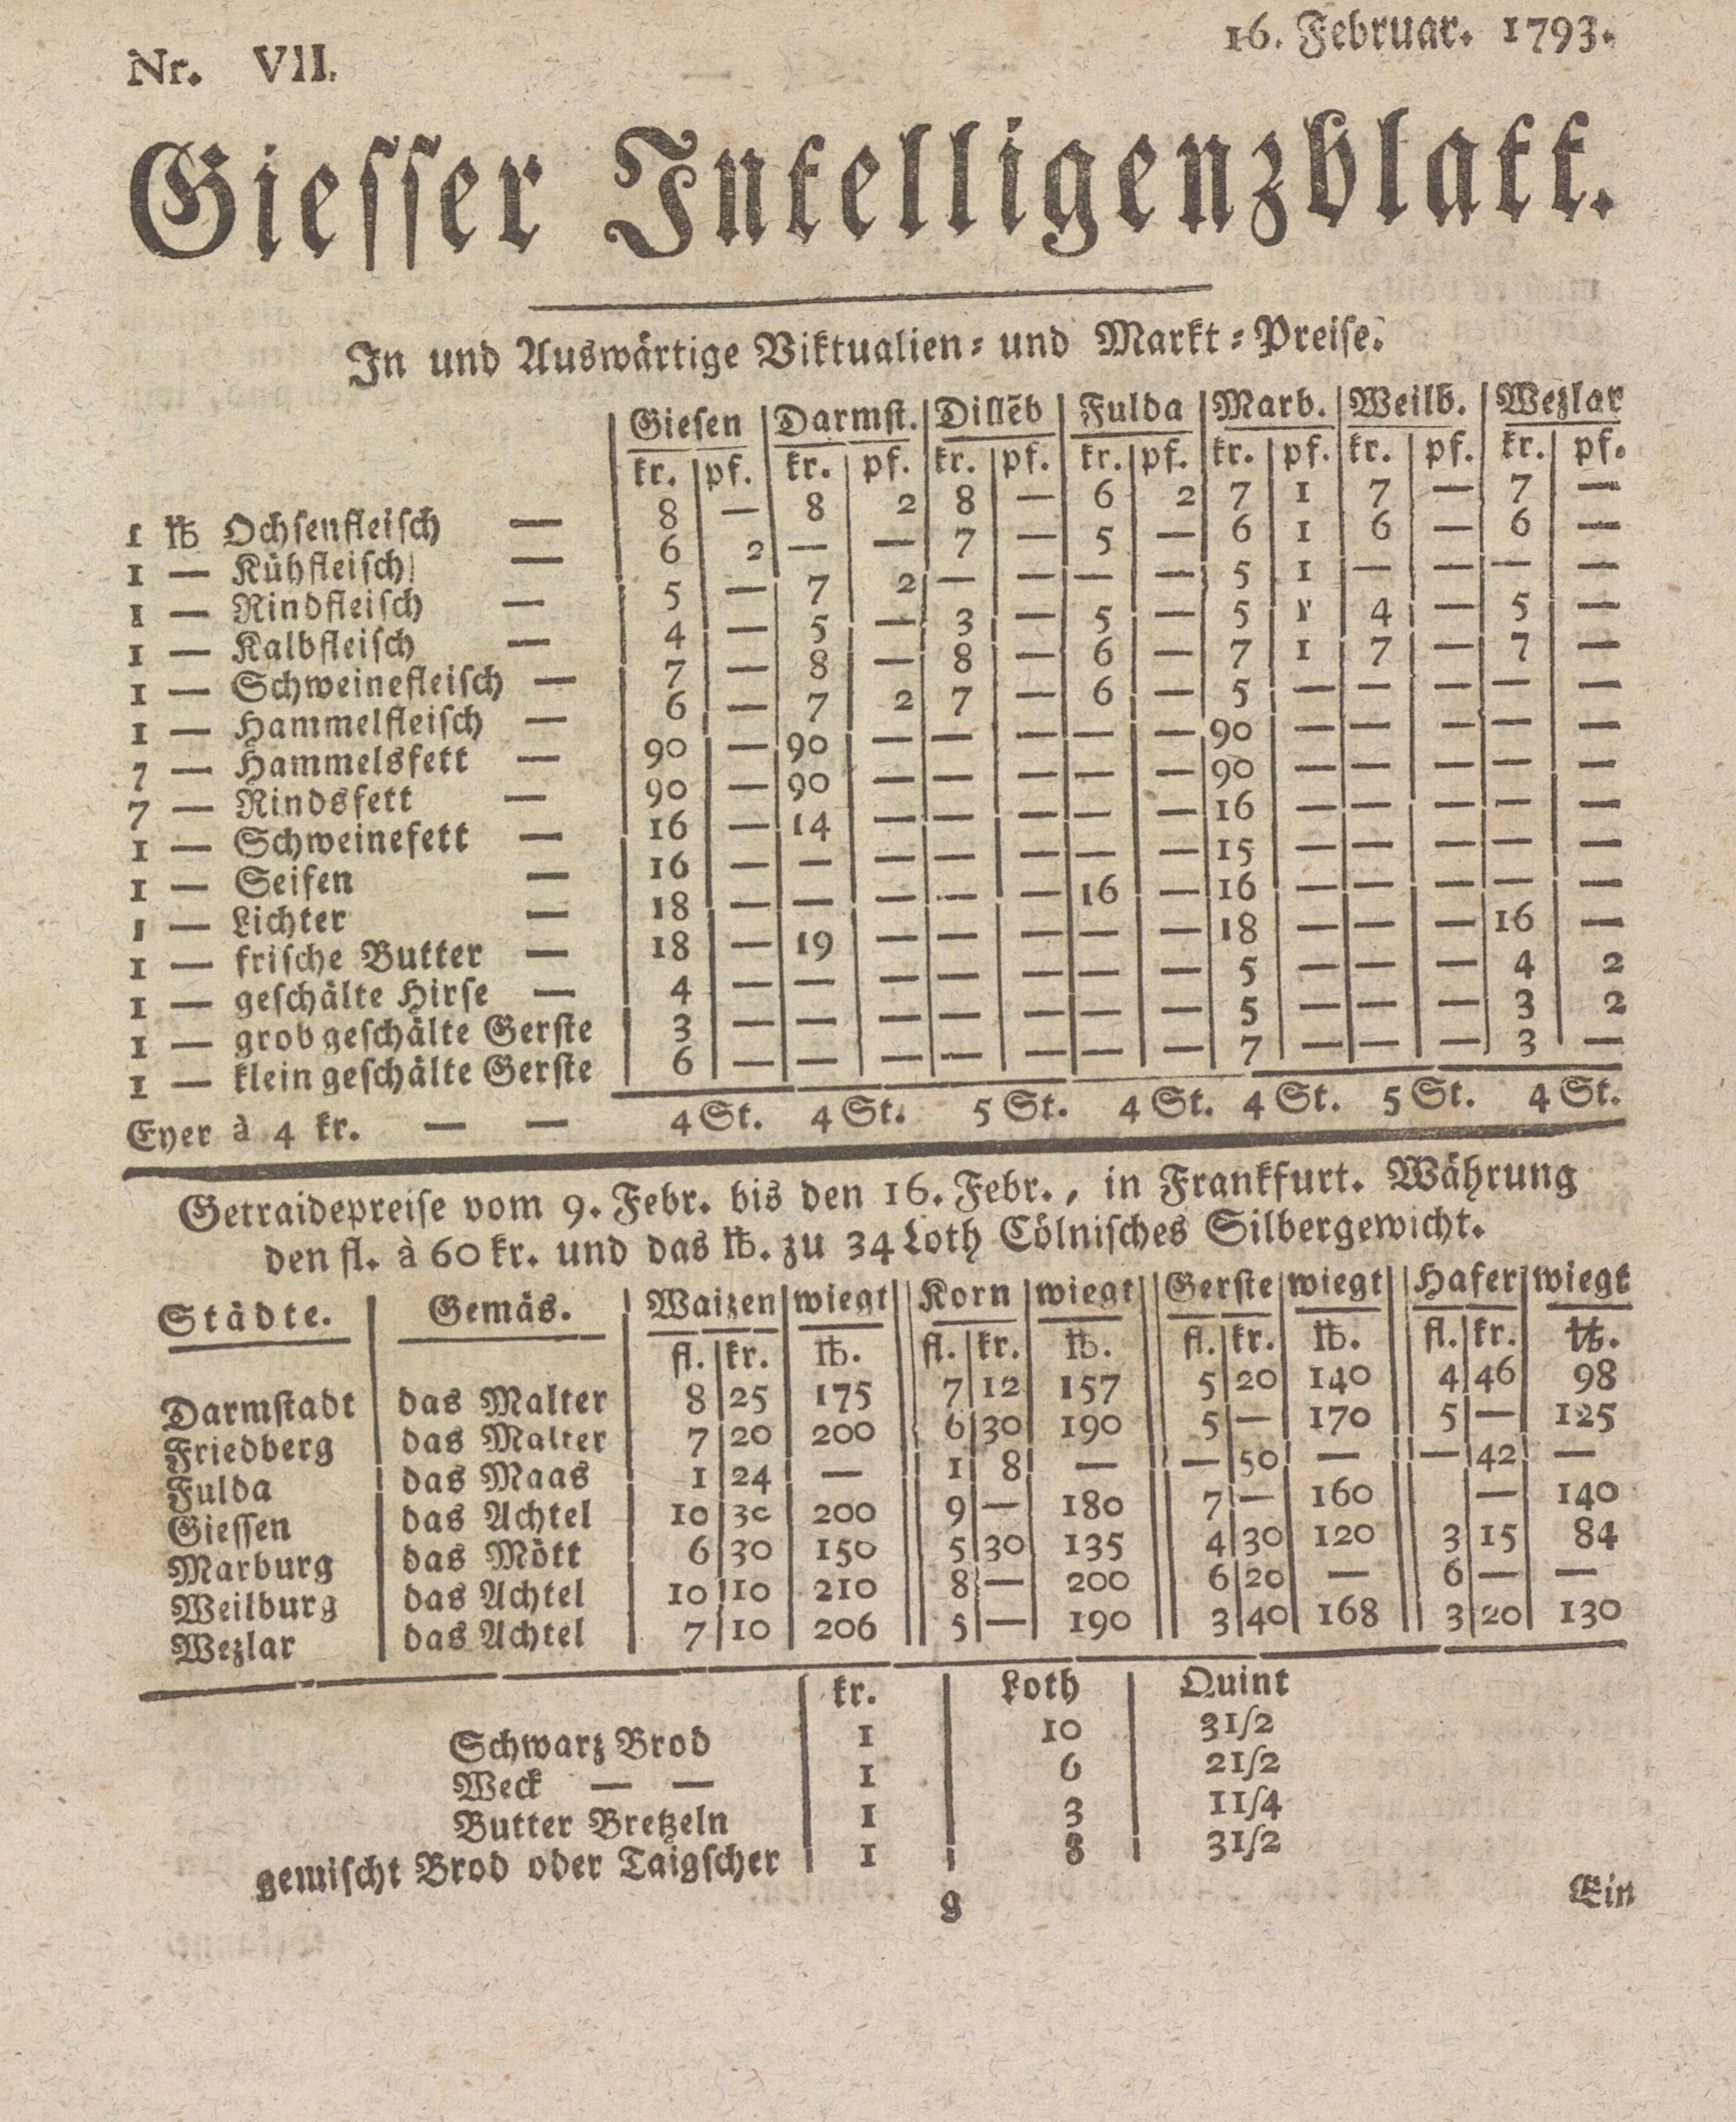 Nr. VII. 16. Februar. 1793.
Giesser Intelligenzblatt.
In und Auswärtige Viktualien- und Markt-Preise.
Giesen | Darmst. | Dillēb | Fulda | Marb. | Weilb. | Wezlar
kr. | pf. | kr. | pf. | kr. | pf. | kr. | pf. | kr. | pf. | kr. | pf. | kr. | pf.
1 ℔ Ochsenfleisch — 8 | — | 8 | 2 | 8 | — | 6 | 2 | 7 | 1 | 7 | — | 7 | —
1 — Kühfleisch — 6 | 2 | — | — | 7 | — | 5 | — | 6 | 1 | 6 | — | 6 | —
1 — Rindfleisch — 5 | — | 7 | 2 | — | — | — | — | 5 | 1 | — | — | — | —
1 — Kalbfleisch — 4 | — | 5 | — | 3 | — | 5 | — | 5 | 1 | 4 | — | 5 | —
1 — Schweinefleisch — 7 | — | 8 | — | 8 | — | 6 | — | 7 | 1 | 7 | — | 7 | —
1 — Hammelfleisch — 6 | — | 7 | 2 | 7 | — | 6 | — | 5 | — | — | — | — | —
7 — Hammelsfett — 90 | — | 90 | — | — | — | — | — | 90 | — | — | — | — | —
7 — Rindsfett — 90 | — | 90 | — | — | — | — | — | 90 | — | — | — | — | —
1 — Schweinefett — 16 | — | 14 | — | — | — | — | — | 16 | — | — | — | — | —
1 — Seifen — 16 | — | — | — | — | — | — | — | 15 | — | — | — | — | —
1 — Lichter — 18 | — | — | — | — | — | 16 | — | 16 | — | — | — | — | —
1 — frische Butter — 18 | — | 19 | — | — | — | — | — | 18 | — | — | — | 16 | —
1 — geschälte Hirse — 4 | — | — | — | — | — | — | — | 5 | — | — | — | 4 | 2
1 — grob geschälte Gerste 3 | — | — | — | — | — | — | — | 5 | — | — | — | 3 | 2
1 — klein geschälte Gerste 6 | — | — | — | — | — | — | — | 7 | — | — | — | 3 | —
Eyer à 4 kr. — — 4 St. 4 St. 5 St. 4 St. 4 St. 5 St. 4 St.
Getraidepreise vom 9. Febr. bis den 16. Febr., in Frankfurt. Währung
den fl. à 60 kr. und das ℔. zu 34 Loth Cölnisches Silbergewicht.
Städte. | Gemäs. | Waizen | wiegt || Korn | wiegt || Gerste | wiegt || Hafer | wiegt
fl. | kr. | ℔. || fl. | kr. | ℔. || fl. | kr. | ℔. || fl. | kr. | ℔.
Darmstadt | das Malter | 8 | 25 | 175 || 7 | 12 | 157 || 5 | 20 | 140 || 4 | 46 | 98
Friedberg | das Malter | 7 | 20 | 200 || 6 | 30 | 190 || 5 | — | 170 || 5 | — | 125
Fulda | das Maas | 1 | 24 | — || 1 | 8 | — || — | 50 | — || — | 42 | —
Giessen | das Achtel | 10 | 30 | 200 || 9 | — | 180 || 7 | — | 160 || | — | 140
Marburg | das Mött | 6 | 30 | 150 || 5 | 30 | 135 || 4 | 30 | 120 || 3 | 15 | 84
Weilburg | das Achtel | 10 | 10 | 210 || 8 | — | 200 || 6 | 20 | — || 6 | — | —
Wezlar | das Achtel | 7 | 10 | 206 || 5 | — | 190 || 3 | 40 | 168 || 3 | 20 | 130
kr. | Loth | Quint
Schwarz Brod | 1 | 10 | 3 1/2
Weck — — | 1 | 6 | 2 1/2
Butter Bretzeln | 1 | 3 | 1 1/4
gemischt Brod oder Taigscher | 1 | 8 | 3 1/2
g Ein